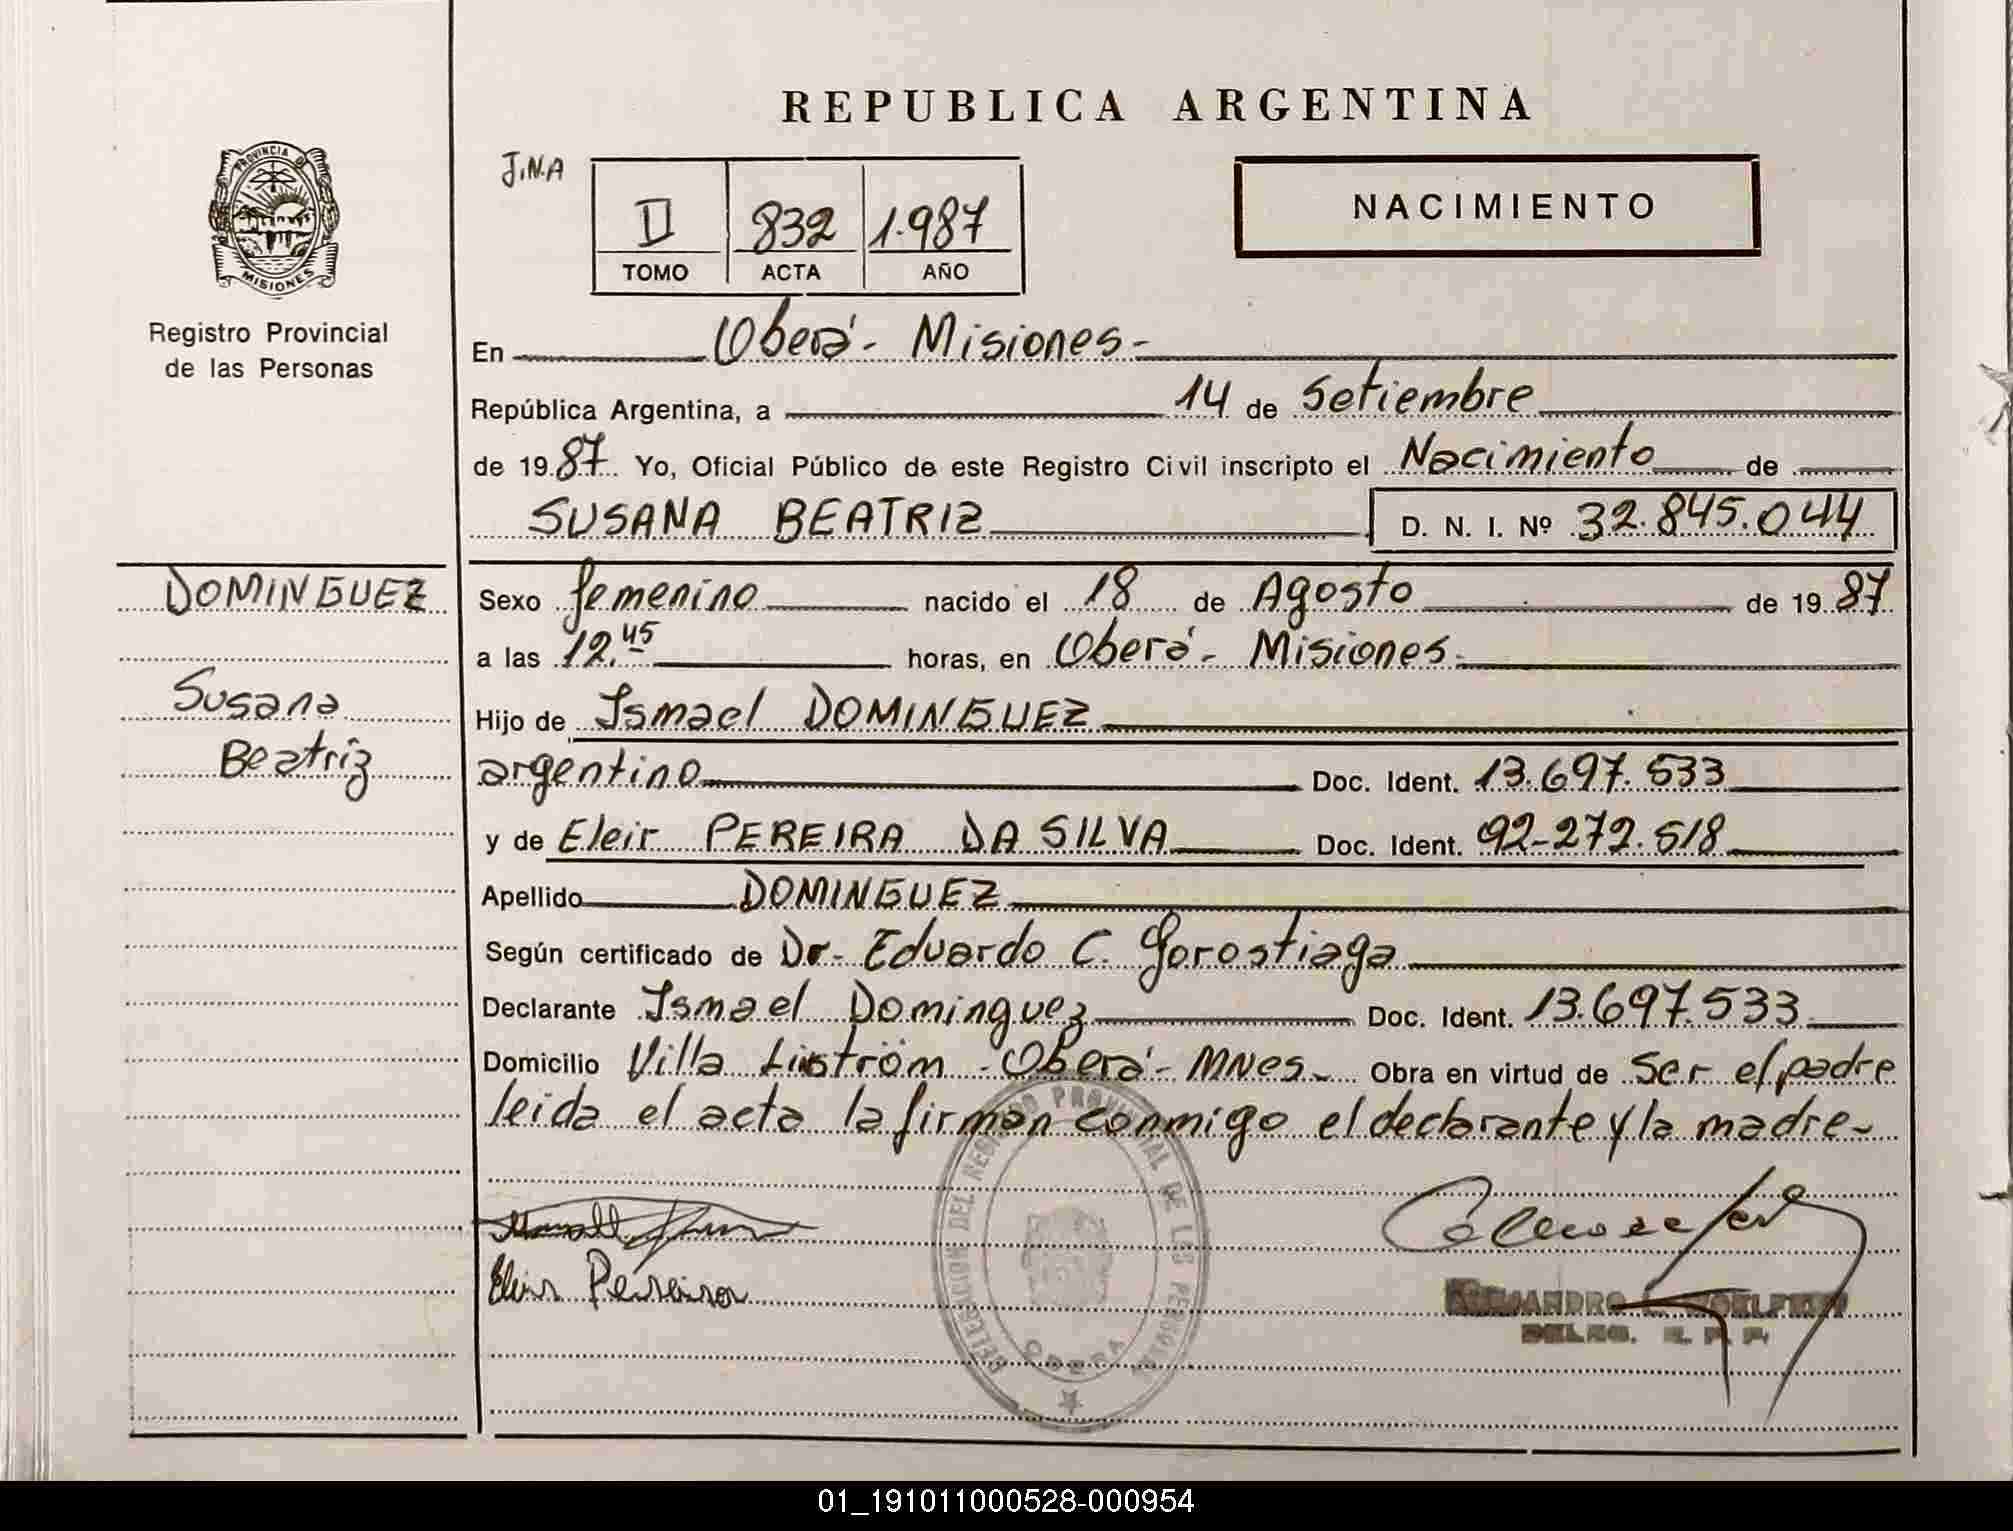 REPUBLICA ARGENTINA
PROVINCIA DE
MISIONES
Registro Provincial
de las Personas
J.N.A
II 832 1.987
TOMO ACTA AÑO
NACIMIENTO
En Oberá - Misiones -
República Argentina, a 14 de Setiembre
de 1987 Yo, Oficial Público de este Registro Civil inscripto el Nacimiento de
SUSANA BEATRIZ D. N. I. Nº 32.845.044
DOMINGUEZ
Susana
Beatriz
Sexo femenino nacido el 18 de Agosto de 1987
a las 12.45 horas, en Oberá - Misiones.
Hijo de Ismael DOMINGUEZ
argentino Doc. Ident. 13.697.533
y de Eleir PEREIRA DA SILVA Doc. Ident. 92-272.518
Apellido DOMINGUEZ
Según certificado de Dr. Eduardo C. Gorostiaga
Declarante Ismael Dominguez Doc. Ident. 13.697.533
Domicilio Villa - Oberá - MNes. Obra en virtud de ser el padre
leida el acta la firman conmigo el declarante y la madre -
DELEGACION DEL REGISTRO PROVINCIAL DE LAS PERSONAS
OBERA
Eleir Pereira
DELEG. R. P. P.
01_191011000528-000954